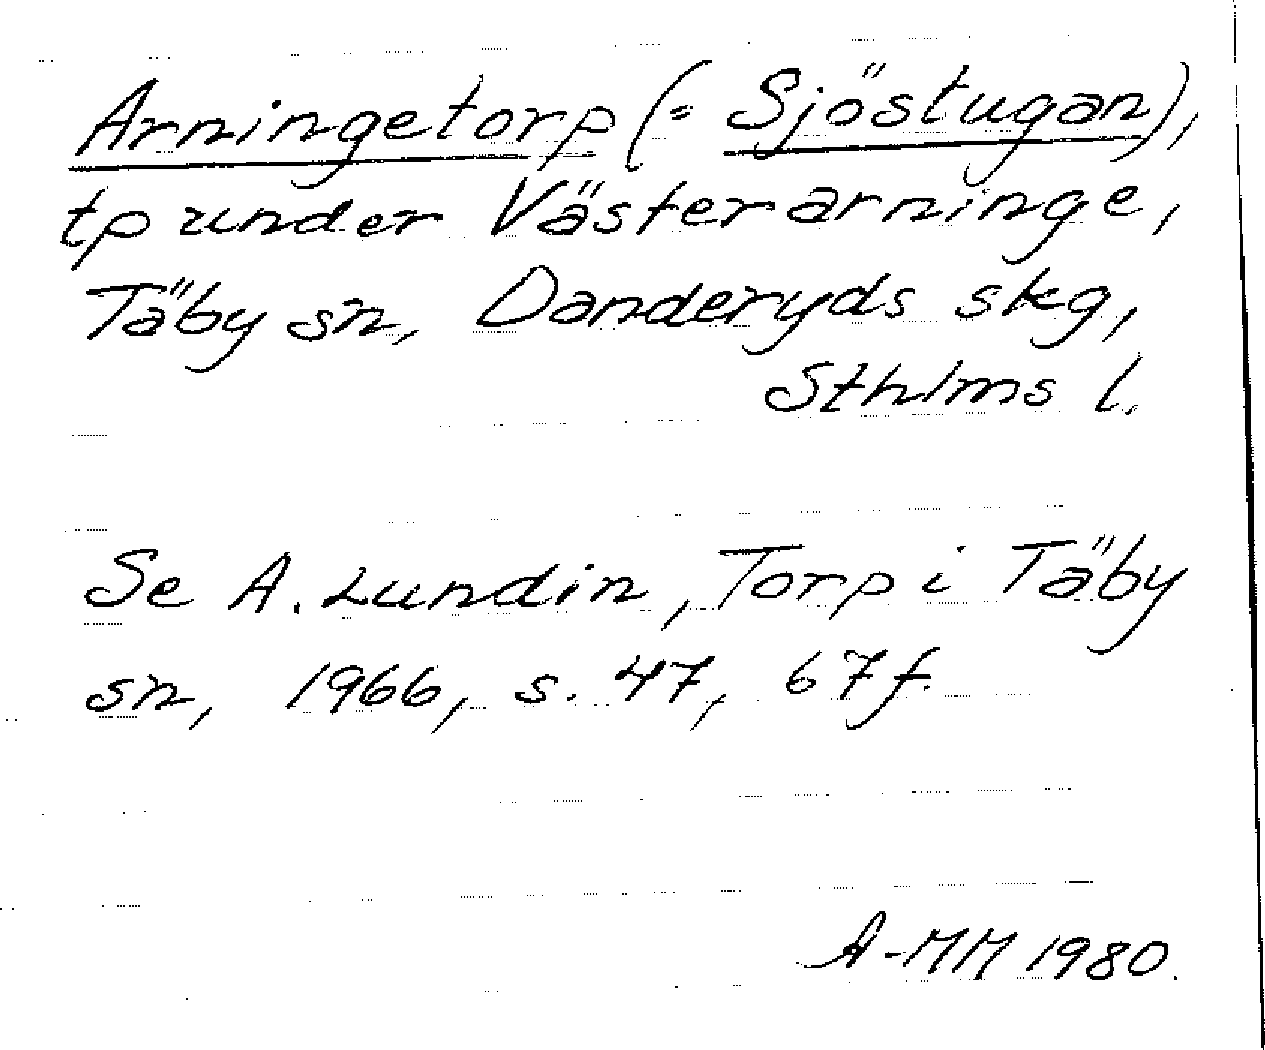 Arningetorp (= Sjöstugan),
tp under Västerarninge,
Täby sn, Danderyds skg,
Sthlms l.
Se A. Lundin, Torp i Täby
sn, 1966, s. 47, 67f.
A-MM 1980.